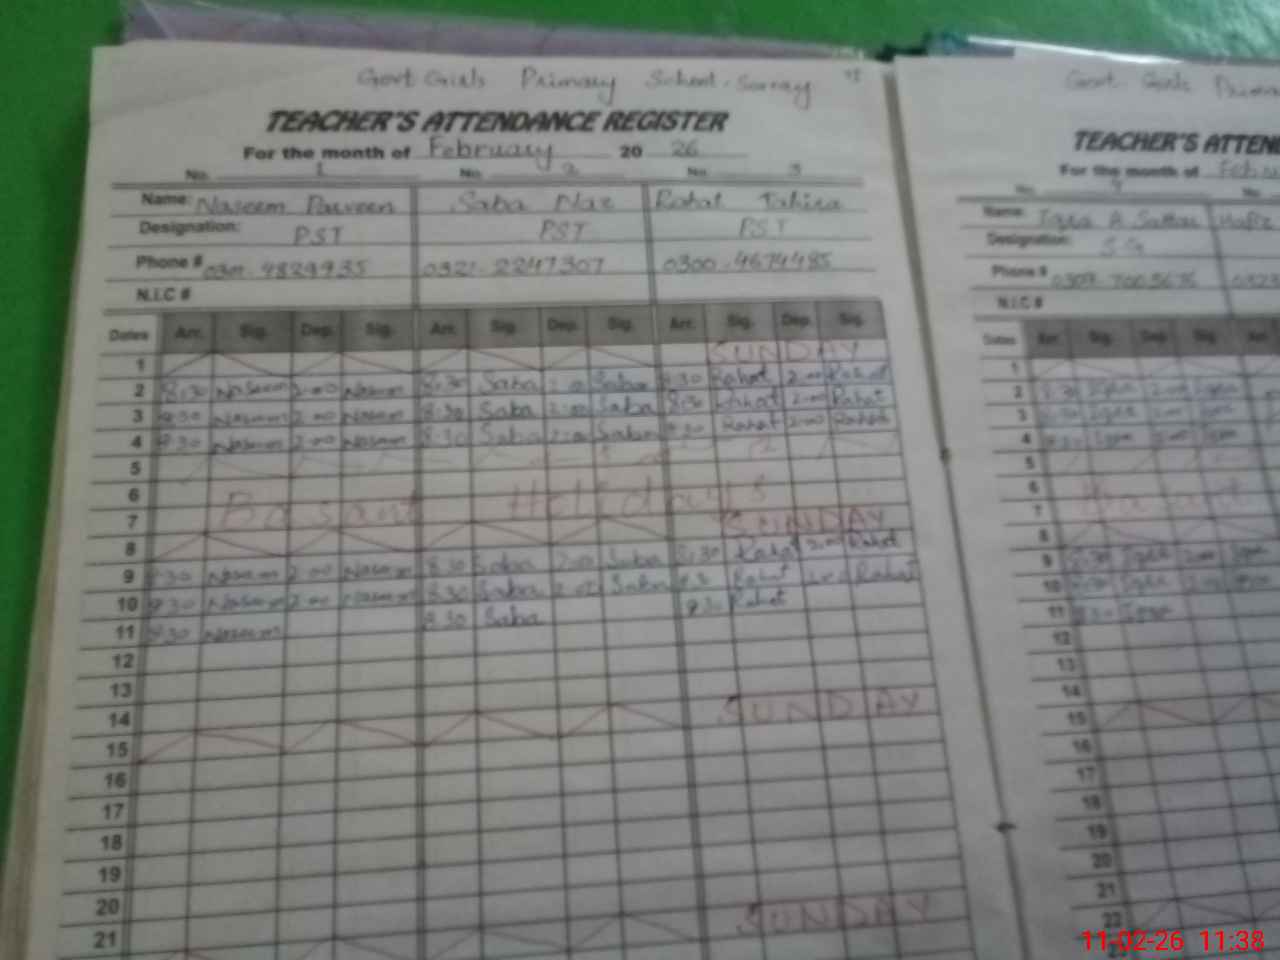 Govt Girls Primary School. Sarray
TEACHER'S ATTENDANCE REGISTER
For the month of February 20 26
No. 1 No. 2 No. 3
Name: Naseem Parveen Saba Naz Rahat Tahira
Designation: PST PST PST
Phone # 0321-2247307 0300-4674485
N.I.C #
Dates Arr. Sig. Dep. Sig. Arr. Sig. Dep. Sig. Arr. Sig. Dep. Sig.
1 SUNDAY
2 8:30 Naseem 2:00 Naseem 8:30 Saba 2:00 Saba 8:30 Rahat 2:00 Rahat
3 8:30 Naseem 2:00 Naseem 8:30 Saba 2:00 Saba 8:30 Rahat 2:00 Rahat
4 8:30 Naseem 2:00 Naseem 8:30 Saba 2:00 Saba 8:30 Rahat 2:00 Rahat
5
6 Basant Holidays
7
8 SUNDAY
9 8:30 Naseem 2:00 Naseem 8:30 Saba 2:00 Saba 8:30 Rahat 2:00 Rahat
10 8:30 Naseem 2:00 Naseem 8:30 Saba 2:00 Saba 8:30 Rahat 2:00 Rahat
11 8:30 Naseem 8:30 Saba 8:30 Rahat
12
13
14
15 SUNDAY
16
17
18
19
20
21
SUNDAY
Govt. Girls
TEACHER'S ATTEN
For the month of
No. No.
Name: Iqra A Sattar
Designation:
Phone #
N.I.C #
Dates Arr. Sig. Dep. Sig.
1
2 8:30 Iqra 2:00 Iqra
3 8:30 Iqra 2:00 Iqra
4 8:30 Iqra 2:00 Iqra
5
6 Basant
7
8
9 8:30 Iqra 2:00 Iqra
10 8:30 Iqra 2:00 Iqra
11 8:30 Iqra
12
13
14
15
16
17
18
19
20
21
22
11-02-26 11:38